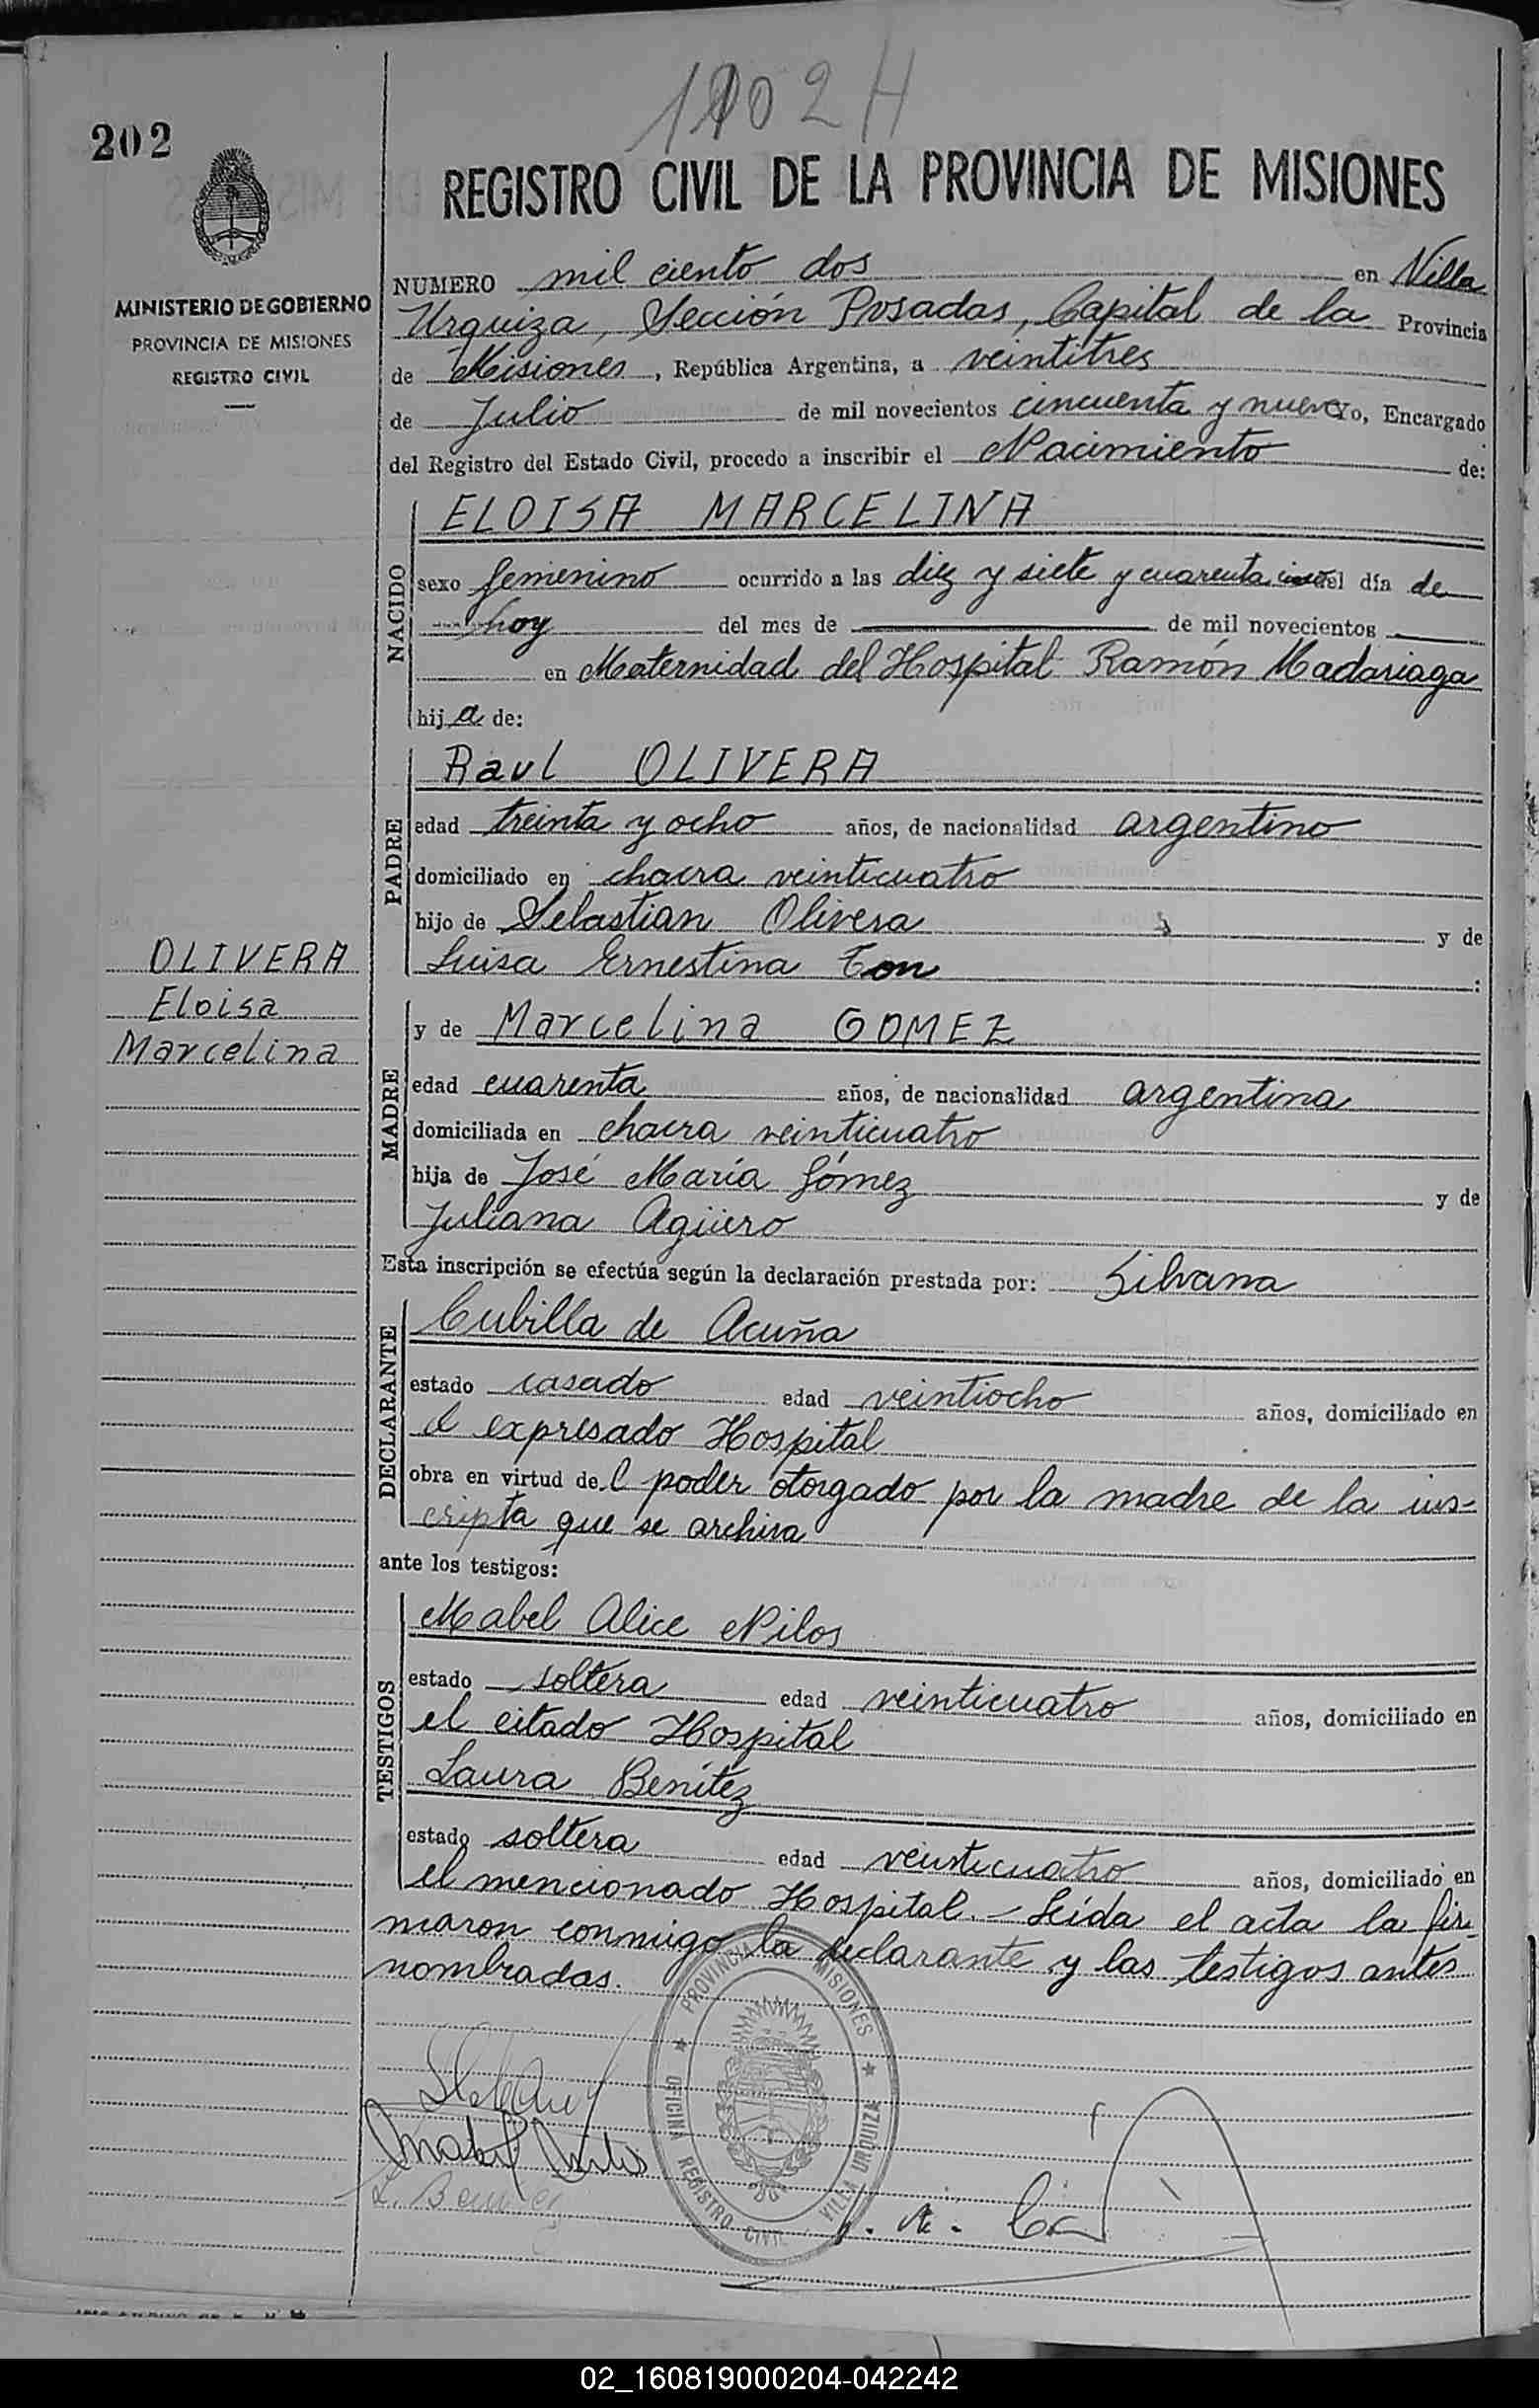 1102 H
202
REGISTRO CIVIL DE LA PROVINCIA DE MISIONES
MINISTERIO DE GOBIERNO
PROVINCIA DE MISIONES
REGISTRO CIVIL
NUMERO mil ciento dos en Villa
Urquiza, Sección Posadas, Capital de la Provincia
de Misiones, República Argentina, a veintitres
de Julio de mil novecientos cincuenta y nueve yo, Encargado
del Registro del Estado Civil, procedo a inscribir el Nacimiento de:
NACIDO
ELOISA MARCELINA
sexo femenino ocurrido a las diez y siete y cuarenta del día de
hoy del mes de de mil novecientos
en Maternidad del Hospital Ramón Madariaga
hija de:
PADRE
Raul OLIVERA
edad treinta y ocho años, de nacionalidad argentino
domiciliado en chacra veinticuatro
hijo de Sebastian Olivera y de
Luisa Ernestina Ton :
OLIVERA
Eloisa
Marcelina
MADRE
y de Marcelina GOMEZ
edad cuarenta años, de nacionalidad argentina
domiciliada en chacra veinticuatro
hija de José María Gómez y de
Juliana Agüero
Esta inscripción se efectúa según la declaración prestada por: Silvana
DECLARANTE
Cubilla de Acuña
estado casado edad veintiocho años, domiciliado en
el expresado Hospital
obra en virtud del poder otorgado por la madre de la ins-
cripta que se archiva
ante los testigos:
TESTIGOS
Mabel Alice Nilos
estado soltera edad veinticuatro años, domiciliado en
el citado Hospital
Laura Benítez
estado soltera edad veinticuatro años, domiciliado en
el mencionado Hospital.- Leída el acta la fir-
maron conmigo la declarante y las testigos antes
nombradas.
PROVINCIA MISIONES
OFICINA REGISTRO CIVIL VILLA URQUIZA
02_160819000204-042242